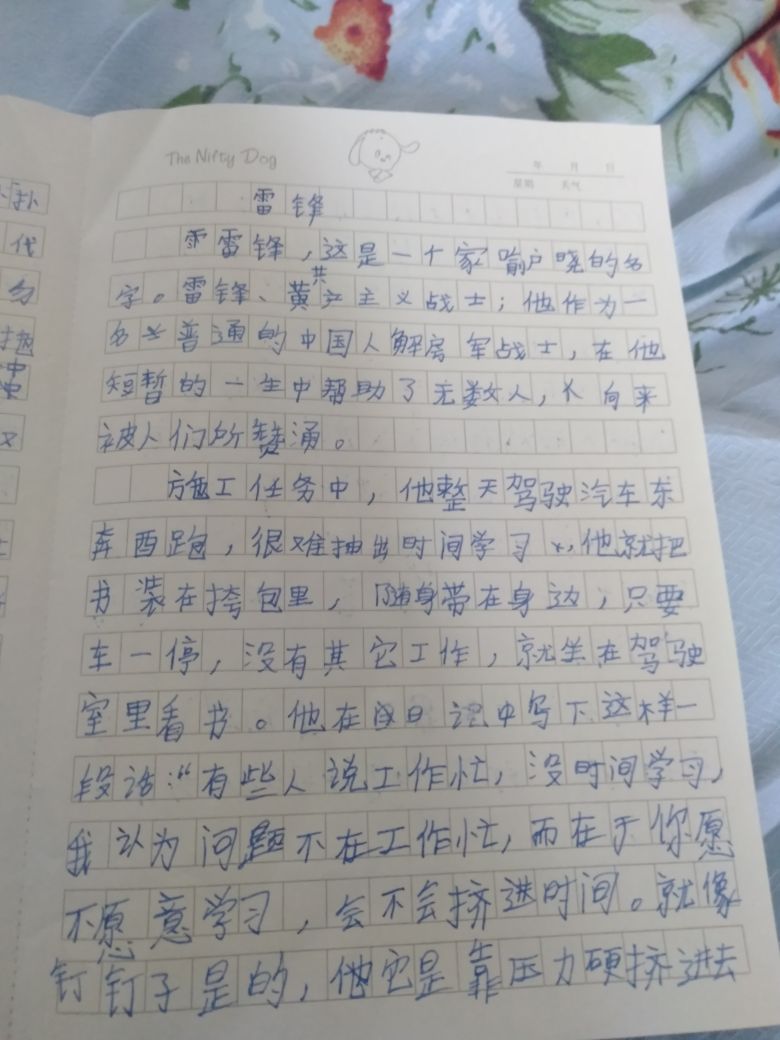 The Nifty Dog
年 月 日
星期 天气
雷锋
雷锋，这是一个家喻户晓的名
字。雷锋、共产主义战士；他作为一
名普通的中国人解房军战士，在他
短暂的一生中帮助了无数人，向来
被人们所赞涌。
施工任务中，他整天驾驶汽车东
奔西跑，很难抽出时间学习，他就把
书装在挎包里，随身带在身边，只要
车一停，没有其它工作，就坐在驾驶
室里看书。他在日记中写下这样一
段话：“有些人说工作忙，没时间学习，
我认为问题不在工作忙，而在于你愿
不愿意学习，会不会挤进时间。就像
钉钉子是的，它是靠压力硬挤进去
扑
代
匀